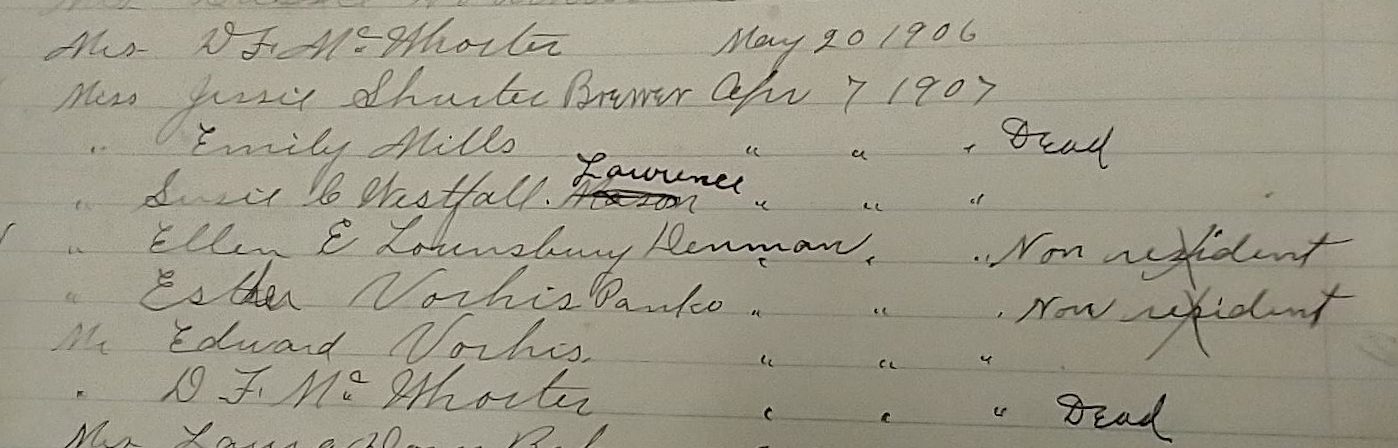 Mrs D F. Mc Whorter May 20 1906
Miss Jessie Shuster Brewer Apr 7 1907
" Emily Mills " " " Dead
" Susie C Westfall. Mason Lawrence " " "
" Ellen E Lounsbury Denman " " " Non resident
" Esther Vorhis Panko " " " Non resident
Mr Edward Vorhis. " " "
" D F. Mc Whorter " " " Dead
Mrs